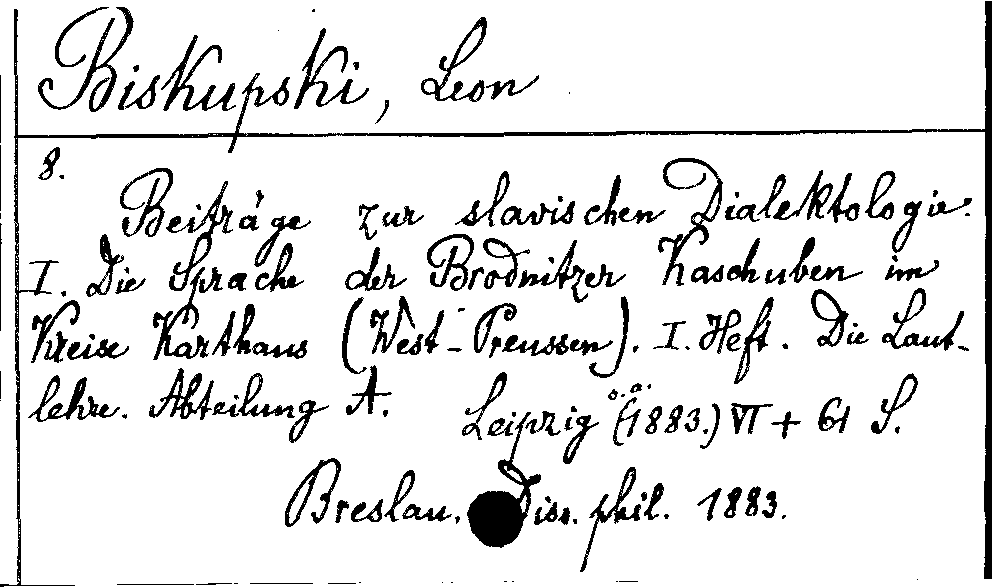 Biskupski, Leon
8.
Beiträge zur slavischen Dialektologie.
I. Die Sprache der Brodnitzer Kaschuben im
Kreise Karthaus (West-Preussen). I. Heft. Die Laut-
lehre. Abteilung A.
o. a.
Leipzig (1883.) VI + 61 S.
Breslau. Diss. phil. 1883.